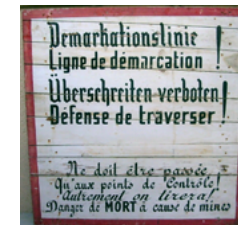 Demarkationslinie !
Ligne de démarcation
Überschreiten verboten !
Défense de traverser
Ne doit être passée
Qu'aux points de Contrôle !
Autrement on tirera !
Danger de MORT à cause de mines